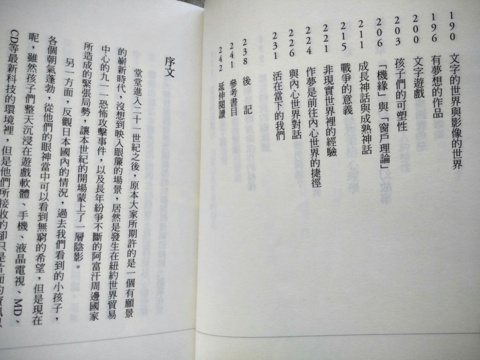 190 文字的世界與影像的世界
196 有夢想的作品
200 文字遊戲
203 孩子們的可塑性
206 「機緣」與「窗戶理論」
211 成長神話與成熟神話
215 戰爭的意義
221 非現實世界裡的經驗
224 作夢是前往內心世界的捷徑
226 與內心世界對話
231 活在當下的我們
238 後 記
241 參考書目
242 延伸閱讀
序文
堂堂進入二十一世紀之後,原本大家所期許的是一個有願景
的嶄新時代,沒想到映入眼簾的場景,居然是發生在紐約世界貿易
中心的九一一恐怖攻擊事件,以及長年紛爭不斷的阿富汗周邊國家
所造成的緊張局勢,讓本世紀的開場蒙上了一層陰影。
另一方面,反觀日本國內的情況,過去我們看到的小孩子,
各個朝氣蓬勃,從他們的眼神當中可以看到無窮的希望,但是現在
呢,雖然孩子們整天沉浸在遊戲軟體、手機、液晶電視、MD、
CD等最新科技的環境裡,但是他們所接收的卻只是片面的資訊